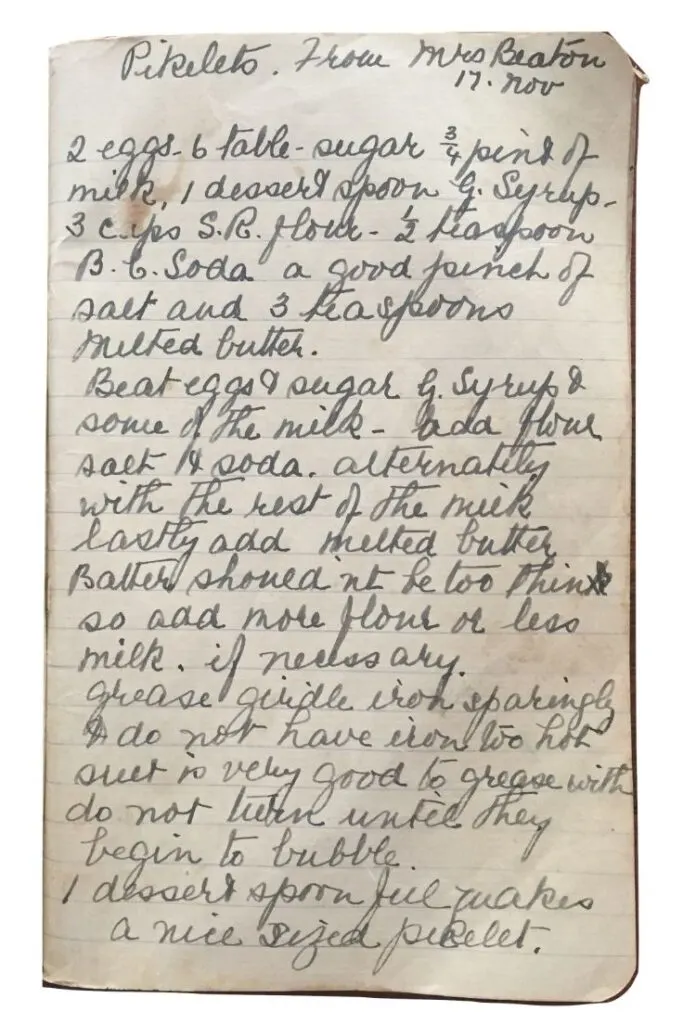 Pikelets. From Mrs Beaton
17. Nov
2 eggs - 6 table - sugar ¾ pint of
milk, 1 dessert spoon G. Syrup -
3 cups S.R. flour - ½ teaspoon
B. C. Soda a good pinch of
salt and 3 teaspoons
melted butter.
Beat eggs & sugar G. Syrup &
some of the milk - add flour
salt & soda. alternately
with the rest of the milk
lastly add melted butter
Batter should'nt be too thin
so add more flour or less
milk. if necessary.
grease girdle iron sparingly
& do not have iron too hot
suet is very good to grease with
do not turn until they
begin to bubble.
1 dessert spoon ful makes
a nice sized pikelet.